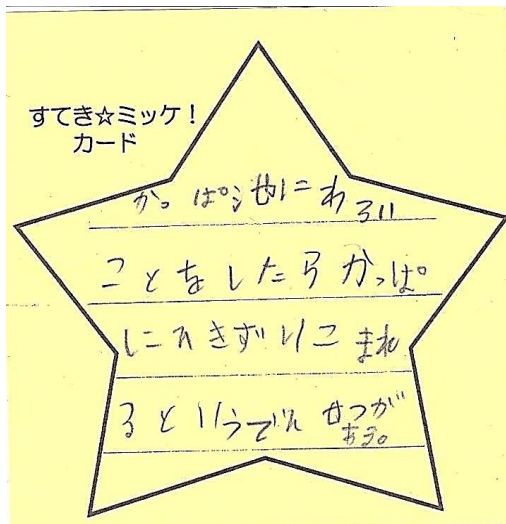 すてき☆ミッケ!
カード
かっぱ池にわるい
ことをしたらかっぱ
にひきずりこまれ
るというでんせつが
ある。